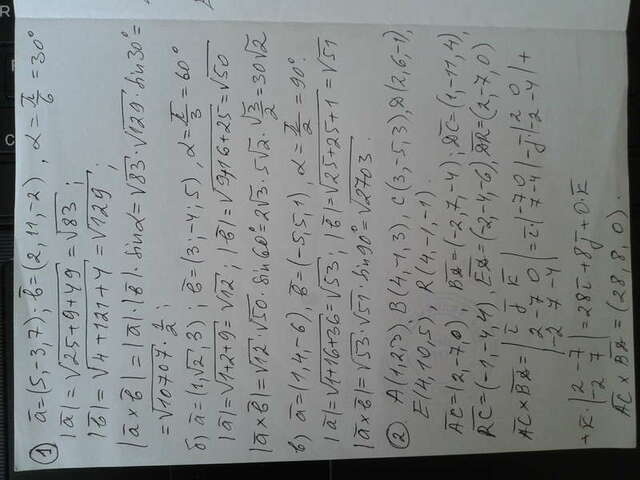 ① a̅=(5,-3,7); b̅=(2,11,-2), α=π/6=30°
|a̅|=√25+9+49=√83;
|b̅|=√4+121+4=√129;
|a̅×b̅|=|a̅|·|b̅|·sinα=√83·√129·sin30°=
=√10707·1/2;
б) a̅=(1,√2,3); b̅=(3;-4;5), α=π/3=60°
|a̅|=√1+2+9=√12; |b̅|=√9+16+25=√50
|a̅×b̅|=√12·√50·sin60°=2√3·5√2·√3/2=30√2
в) a̅=(1,4,-6), b̅=(-5,5,1), α=π/2=90°.
|a̅|=√1+16+36=√53; |b̅|=√25+25+1=√51
|a̅×b̅|=√53·√51·sin90°=√2703.
② A(1,2,3), B(4,-1,3), C(3,-5,3), D(2,6,-1),
E(4,10,5), R(4,-1,-1).
A̅C̅=(2,-7,0), =(-2,7,-4); D̅C̅=(1,-11,4),
R̅C̅=(-1,-4,4), =(-2,-4,-6), =(2,-7,0)
| i̅ j̅ k̅ |
A̅C̅× = | 2 -7 0 | = i̅·|-7 0| - j̅·|2 0| +
| -2 7 -4 | |7 -4| |-2 -4|
+k̅·|2 -7| = 28i̅+8j̅+0·k̅
|-2 7|
A̅C̅× =(28,8,0).